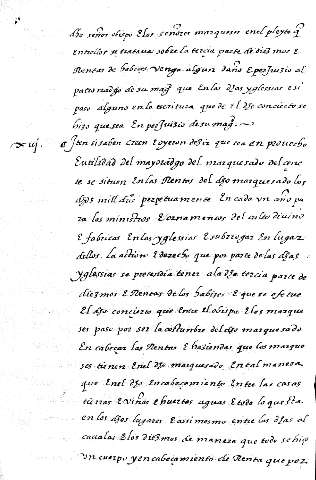 dho señor obispo E los señores marqueses en el pleyto q
entrellos se tratava sobre la tercia parte de diezmos E
Rentas de habizes venga algun daño E perjuizio al
patronadgo de su mag^t que En las dhas yglesias e si
paso alguno en la escritura que de el dho concierto se
hizo que sea En perJuizio de su mag^t
xvj. Iten si saben creen E oyeron dezir que sea en provecho
E utilidad del mayoradgo del marquesado del
te se situen En las Rentas del dho marquesado los
dhos mill du^s perpetuamente En cada un año pa
ra los ministros E ornamentos del culto divino
E fabricas En las yglesias E subrrogar En lugar
dellos la action E derecho que por parte de las dhas
yglesias se pretendia tener a la dha tercia parte de
diezmos E Rentas de los habizes E que se efetue
El dho concierto que Entre El obispo E los marque
ses paso por ser la costumbre del dho marquesado
En cabeçar las Rentas E haziendas que los marque
ses tienen En el dho marquesado En tal manera
que En el dho Encabeçamiento Entre las casas
tierras E viñas E huertos aguas E todo lo que Esta
en los dhos lugares E asi mesmo entre las dhas al
cavalas E los diezmos de manera que todo se hizo
un cuerpo y encabeçamiento de Renta que por